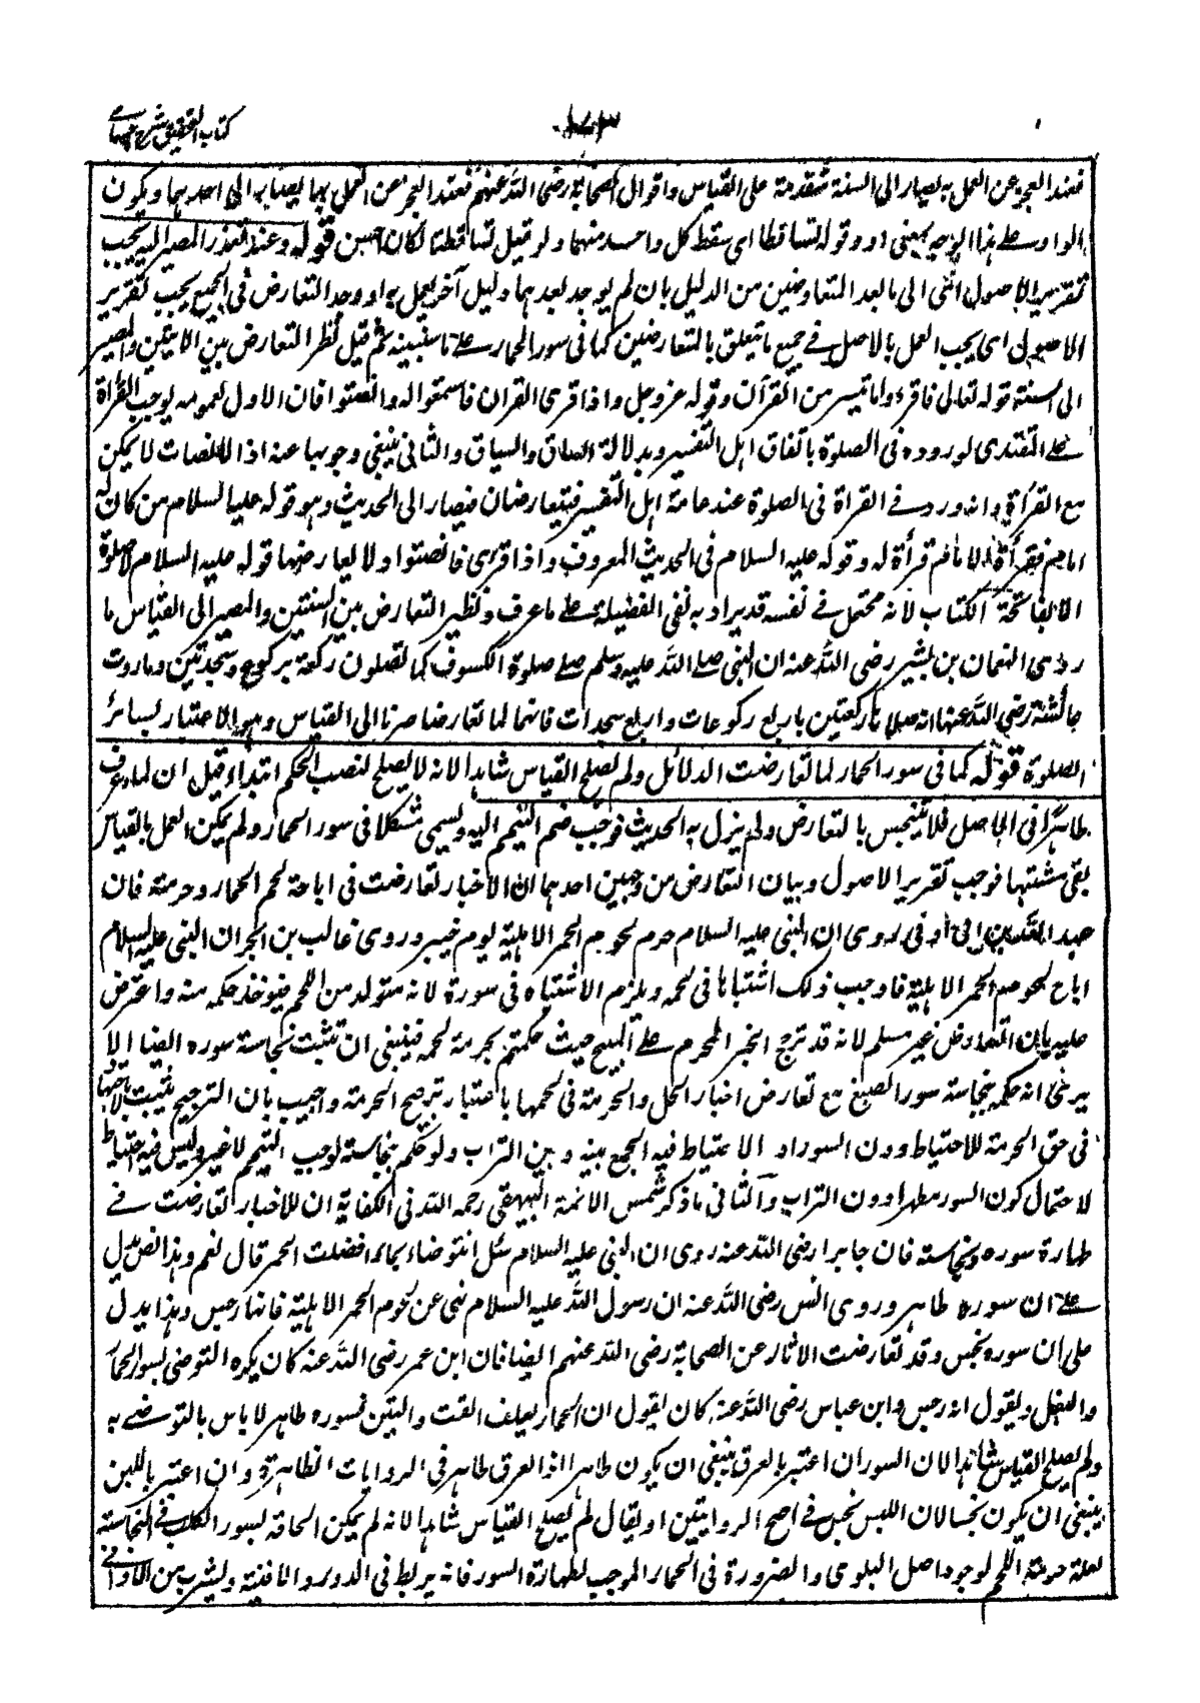 كتاب التحقيق شرح حسامى
١٧٣
فعند العجز عن العمل به يصار الى السنة متقدمة على القياس واقوال الصحابة رضى الله عنهم فعند العجز عن العمل بها يصار الى احدهما ويكون
الواو على هذا الوجه بمعنى او وقوله تساقطا اى سقط كل واحد منهما ولو قيل تساقطتا لكان احسن قوله وعند تعذر المصير اليه يجب
تقرير الاصول انتهى الى ما بعد التعارضين من الدليل بان لم يوجد بعدهما دليل آخر يعمل به او وجد التعارض فى الجميع يجب تقرير
الاصول اى يجب العمل بالاصل فى جميع ما يتعلق بالتعارضين كما فى سور الحمار على ما سنبينه ثم قيل نظر التعارض بين الايتين والمصير
الى السنة قوله تعالى فاقرءوا ما تيسر من القرآن وقوله عز وجل واذا قرئ القران فاستمعوا له وانصتوا فان الاول لعمومه يوجب القرأة
على المقتدى لوروده فى الصلوة باتفاق اهل التفسير وبدلالة السياق والسياق والثانى ينفى وجوبها عنه اذ الانصات لا يمكن
مع القرأة وانه ورد فى القراة فى الصلوة عند عامة اهل التفسير فيتعارضان فيصار الى الحديث وهو قوله عليه السلام من كان له
امام فقرأة الامام قرأة له وقوله عليه السلام فى الحديث المعروف واذا قرئ فانصتوا ولا يعارضها قوله عليه السلام لا صلوة
الا بفاتحة الكتاب لانه محتمل فى نفسه قد يراد به نفى الفضيلة على ما عرف ونظير التعارض بين السنتين والمصير الى القياس ما
روى النعمان بن بشير رضى الله عنه ان النبى صلى الله عليه وسلم صلى صلوة الكسوف كما تصلون ركعة بركوع وسجدتين وما روت
عائشة رضى الله عنها انه صلاها ركعتين باربع ركوعات واربع سجدات فانهما لما تعارضا صرنا الى القياس وهو الاعتبار بسائر
الصلوة قوله كما فى سور الحمار لما تعارضت الدلائل ولم يصلح القياس شاهدا لانه لا يصلح لنصب الحكم ابتداء قيل ان لما عرف
طاهرا فى الاصل فلا يتنجس بالتعارض ولم يزل به الحدث فوجب ضم التيمم اليه ويسمى مشكلا فى سور الحمار ولم يمكن العمل بالقياس
بقى مشتبها فوجب تقرير الاصول وبيان التعارض من وجهين احدهما ان الاخبار تعارضت فى اباحة لحم الحمار وحرمته فان
عبد الله بن ابى اوفى روى ان النبى عليه السلام حرم لحوم الحمر الاهلية يوم خيبر وروى غالب بن ابجر ان النبى عليه السلام
اباح لحوم الحمر الاهلية فاوجب ذلك اشتباها فى لحمه ويلزم الاشتباه فى سورة لانه متولد من اللحم فيؤخذ حكمه منه واعترض
عليه بان التعارض غير مسلم لانه قد ترجح الخبر المحرم على المبيح حيث حكمتم بحرمة لحمه فينبغى ان تثبت نجاسة سوره ايضا الا
يرى انه حكم بنجاسة سور الضبع مع تعارض اخبار الحل والحرمة فى لحمها باعتبار ترجيح الحرمة واجيب بان الترجيح يثبت بالاحتياط
فى حق الحرمة للاحتياط دون السور اذ الاحتياط فيه الجمع بينه وبين التراب ولو حكم بنجاسة لوجب التيمم لا غير وليس فيه احتياط
لاحتمال كون السور مطهرا دون التراب والثانى ما ذكر شمس الائمة البيهقى رحمه الله فى الكفاية ان الاخبار تعارضت فى
طهارة سوره ونجاسته فان جابرا رضى الله عنه روى ان النبى عليه السلام سئل انتوضاء بماء افضلت الحمر قال نعم وهذا نص يدل
على ان سوره طاهر وروى انس رضى الله عنه ان رسول الله عليه السلام نهى عن لحوم الحمر الاهلية فانها رجس وهذا يدل
على ان سوره نجس وقد تعارضت الاثار عن الصحابة رضى الله عنهم ايضا فان ابن عمر رضى الله عنه كان يكره التوضى بسور الحمار
والبغل ويقول انه رجس وابن عباس رضى الله عنه كان يقول ان الحمار يعلف القت والتبن فسوره طاهر لا باس بالتوضى به
ولم يصلح القياس شاهدا لان السور ان اعتبر بالعرق ينبغى ان يكون طاهرا اذ العرق طاهر فى الروايات الظاهرة وان اعتبر باللبن
ينبغى ان يكون نجسا لان اللبن نجس فى اصح الروايتين او يقال لم يصلح القياس شاهدا لانه لم يمكن الحاقه بسور الكلب فى النجاسة
لعلة حرمة اللحم لوجود اصل البلوى والضرورة فى الحمار الموجب لطهارة السور فانه يربط فى الدور والافنية ويشرب من الاوانى